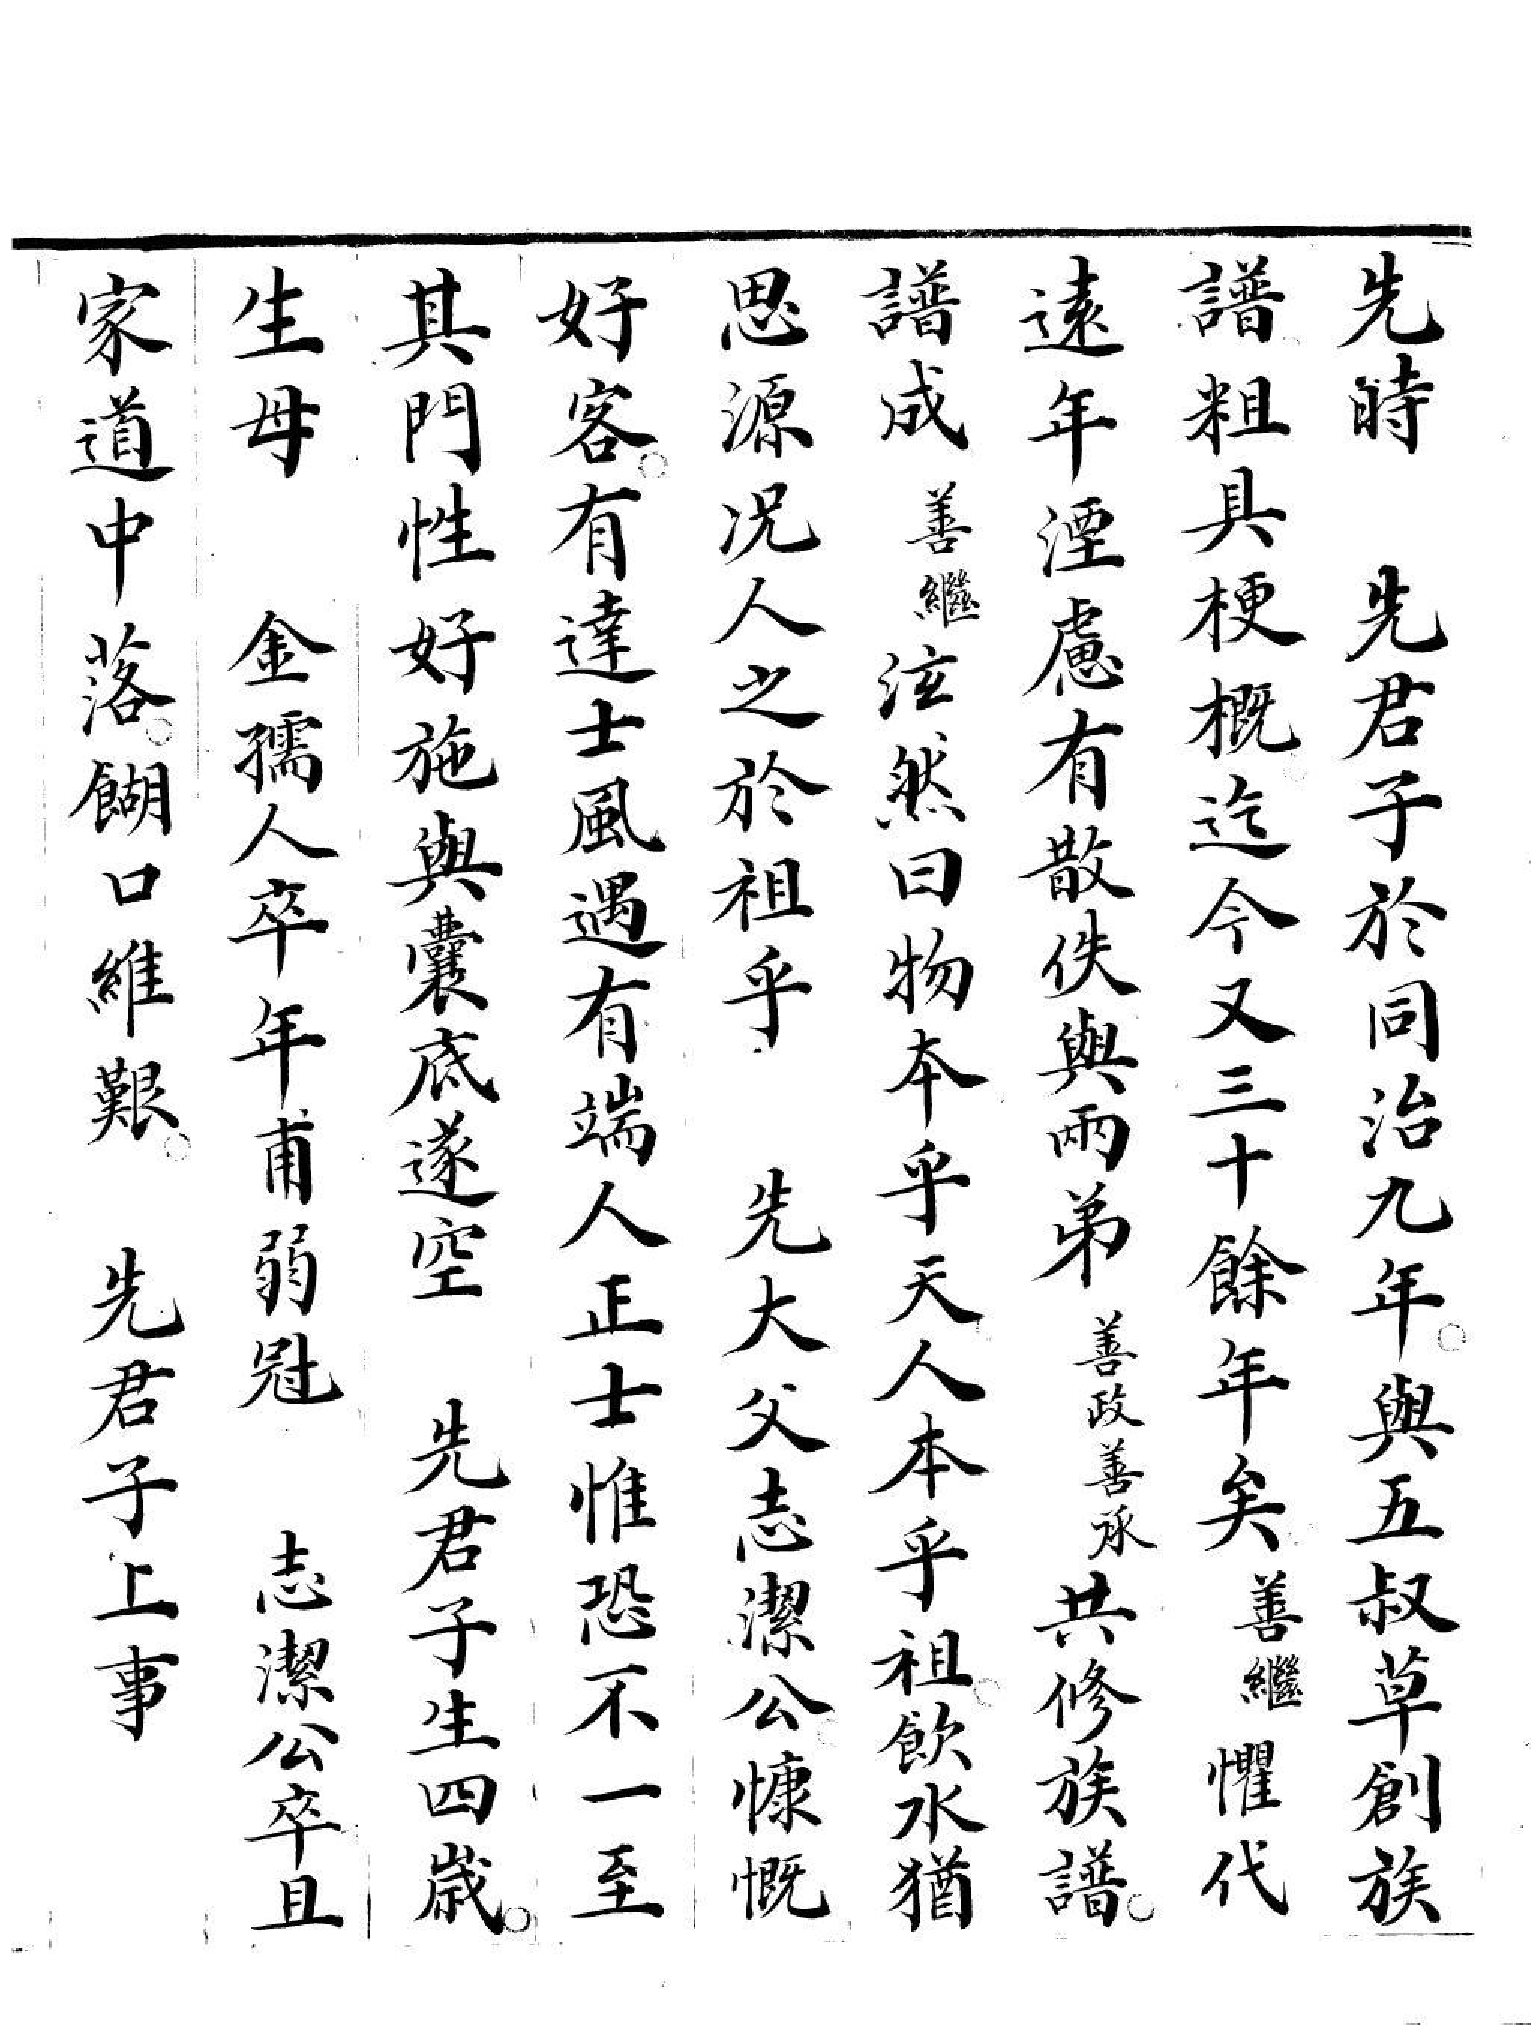 先時　先君子於同治九年與五叔草創族
譜粗具梗概迄今又三十餘年矣善繼懼代
遠年湮慮有散佚與兩弟善政善承共修族譜
譜成善繼泫然曰物本乎天人本乎祖飲水猶
思源况人之於祖乎　先大父志潔公慷慨
好客有達士風遇有端人正士惟恐不一至
其門性好施與囊底遂空　先君子生四歲
生母　金孺人卒年甫弱冠　志潔公卒且
家道中落餬口維艱　先君子上事